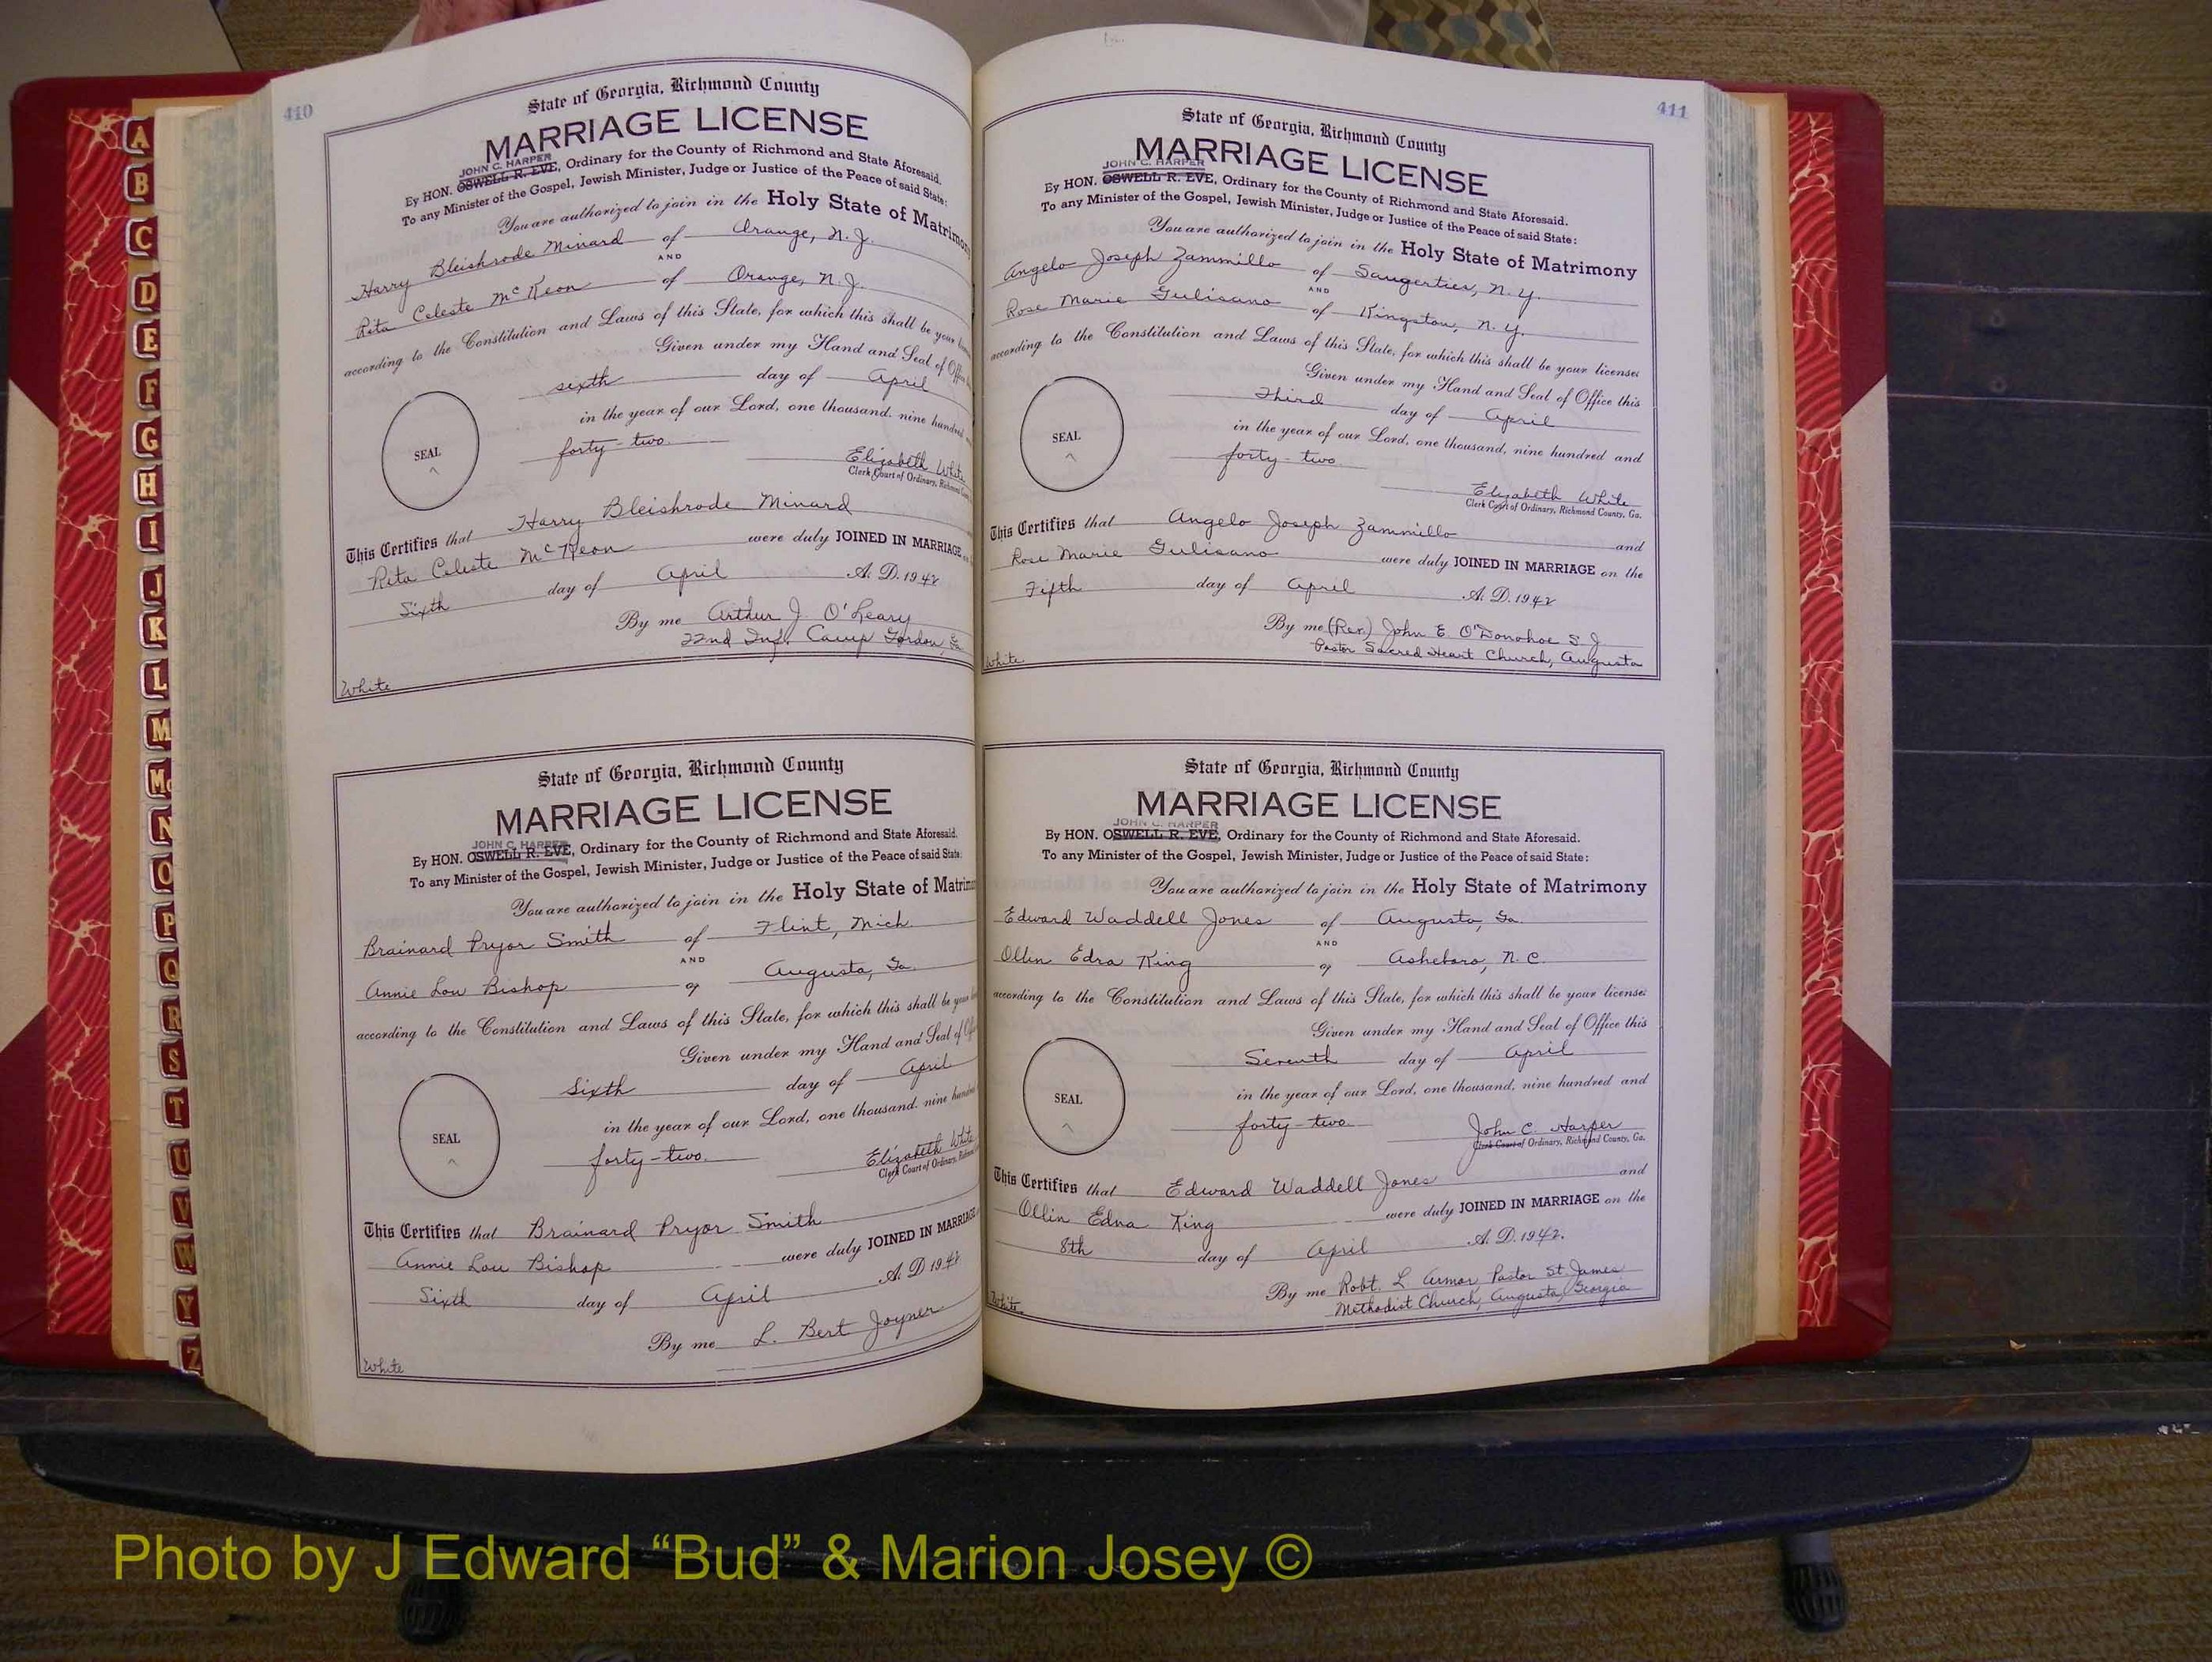 410
State of Georgia, Richmond County
MARRIAGE LICENSE
JOHN C. HARPER
By HON. OSWELL R. EVE, Ordinary for the County of Richmond and State Aforesaid.
To any Minister of the Gospel, Jewish Minister, Judge or Justice of the Peace of said State:
You are authorized to join in the Holy State of Matrimony
Harry Bleishrode Minard of Orange, N. J.
AND
Rita Celeste McKeon of Orange, N. J.
according to the Constitution and Laws of this State, for which this shall be your
Given under my Hand and Seal of Office
sixth day of April
in the year of our Lord, one thousand, nine hundred
SEAL
forty-two
Elizabeth White
Clerk Court of Ordinary, Richmond
This Certifies that Harry Bleishrode Minard
Rita Celeste McKeon were duly JOINED IN MARRIAGE
Sixth day of April A. D. 1942
By me Arthur J. O'Leary
22nd Inf. Camp Gordon, Ga.
White
State of Georgia, Richmond County
MARRIAGE LICENSE
JOHN C. HARPER
By HON. OSWELL R. EVE, Ordinary for the County of Richmond and State Aforesaid.
To any Minister of the Gospel, Jewish Minister, Judge or Justice of the Peace of said State:
You are authorized to join in the Holy State of Matrimo
Brainard Pryor Smith of Flint, Mich.
AND
Annie Lou Bishop of Augusta, Ga.
according to the Constitution and Laws of this State, for which this shall be your
Given under my Hand and Seal of
Sixth day of April
in the year of our Lord, one thousand, nine hundred
SEAL
forty-two.
Elizabeth White
Clerk Court of Ordinary,
This Certifies that Brainard Pryor Smith
Annie Lou Bishop were duly JOINED IN MARRIAGE
Sixth day of April A. D. 1942
By me L. Bert Joyner
White
411
State of Georgia, Richmond County
MARRIAGE LICENSE
JOHN C. HARPER
By HON. OSWELL R. EVE, Ordinary for the County of Richmond and State Aforesaid.
To any Minister of the Gospel, Jewish Minister, Judge or Justice of the Peace of said State:
You are authorized to join in the Holy State of Matrimony
Angelo Joseph Zammillo of Saugerties, N. Y.
AND
Rose Marie Gulisano of Kingston, N. Y.
according to the Constitution and Laws of this State, for which this shall be your license:
Given under my Hand and Seal of Office this
Third day of April
in the year of our Lord, one thousand, nine hundred and
SEAL
forty-two
Elizabeth White
Clerk Court of Ordinary, Richmond County, Ga.
This Certifies that Angelo Joseph Zammillo and
Rose Marie Gulisano were duly JOINED IN MARRIAGE on the
Fifth day of April A. D. 1942
By me (Rev.) John E. O'Donohoe S J
Pastor Sacred Heart Church, Augusta
White
State of Georgia, Richmond County
MARRIAGE LICENSE
JOHN C. HARPER
By HON. OSWELL R. EVE, Ordinary for the County of Richmond and State Aforesaid.
To any Minister of the Gospel, Jewish Minister, Judge or Justice of the Peace of said State:
You are authorized to join in the Holy State of Matrimony
Edward Waddell Jones of Augusta, Ga.
AND
Ollin Edna King of Asheboro, N. C.
according to the Constitution and Laws of this State, for which this shall be your license:
Given under my Hand and Seal of Office this
Seventh day of April
in the year of our Lord, one thousand, nine hundred and
SEAL
forty-two
John C. Harper
Clerk Court of Ordinary, Richmond County, Ga.
This Certifies that Edward Waddell Jones and
Ollin Edna King were duly JOINED IN MARRIAGE on the
8th day of April A. D. 1942.
By me Robt. L. Armor, Pastor St. James
Methodist Church, Augusta, Georgia
White
A
B
C
D
E
F
G
H
I
J
K
L
M
Mc
N
O
P
Q
R
S
T
U
V
W
Y
Z
Photo by J Edward “Bud” & Marion Josey ©